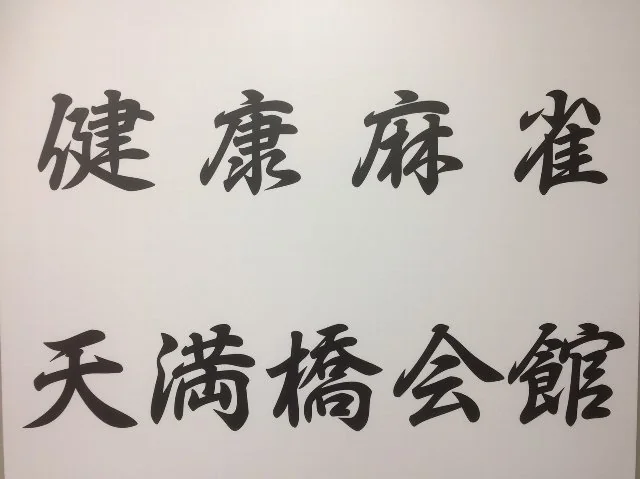 健康麻雀
天満橋会館